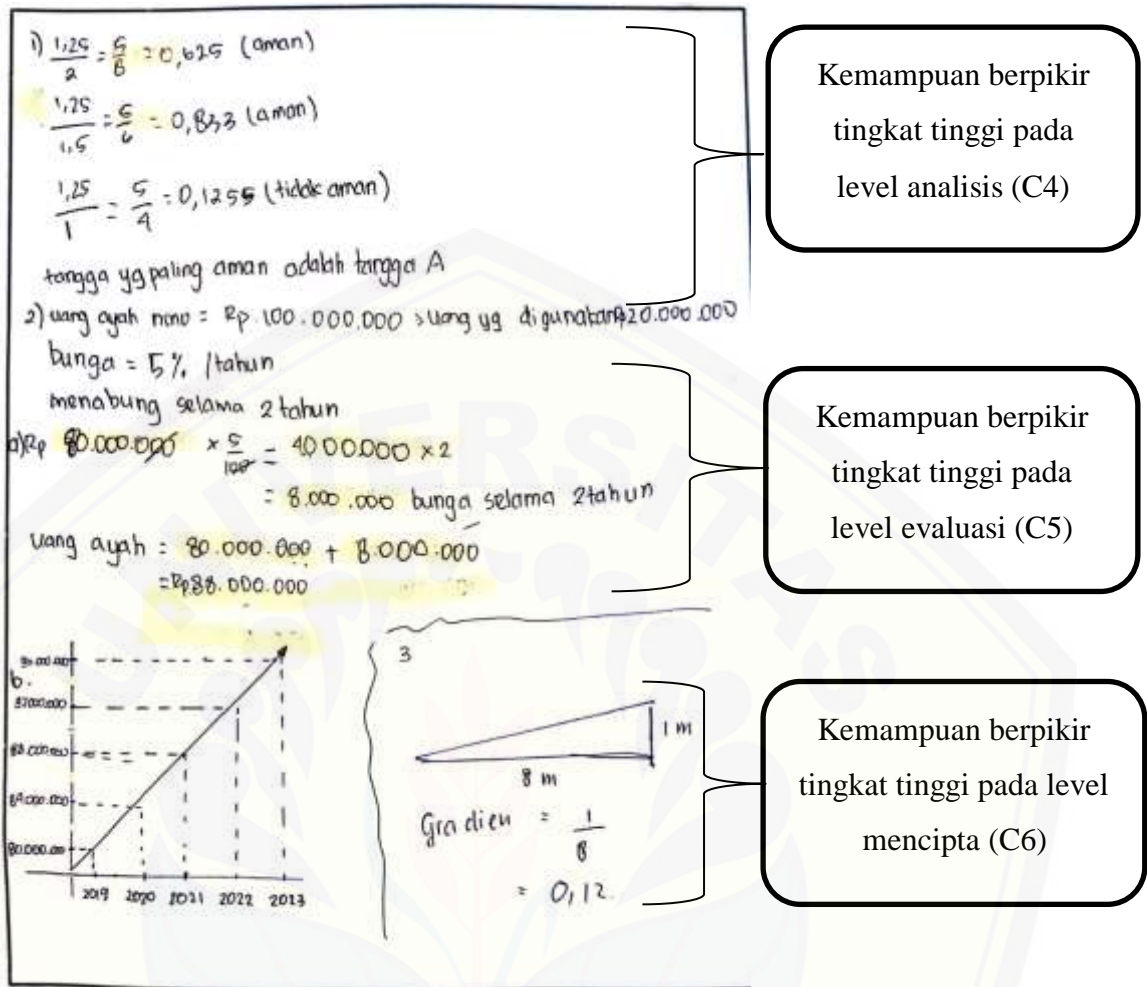 1) 1,25/2 = 5/8 = 0,625 (aman)
1,25/1,5 = 5/6 = 0,833 (aman)
1,25/1 = 5/4 = 0,1255 (tidak aman)
tangga yg paling aman adalah tangga A
2) uang ayah nono = Rp 100.000.000 > uang yg digunakan Rp20.000.000
bunga = 5% /tahun
menabung selama 2 tahun
a) Rp 80.000.000 × 5/100 = 4000000 × 2
= 8.000.000 bunga selama 2 tahun
Uang ayah = 80.000.000 + 8.000.000
= Rp 88.000.000
b.
84.000.000
80.000.00
2019 2020 2021 2022 2013
3
1 m
8 m
Gradien = 1/8
= 0,12
Kemampuan berpikir
tingkat tinggi pada
level analisis (C4)
Kemampuan berpikir
tingkat tinggi pada
level evaluasi (C5)
Kemampuan berpikir
tingkat tinggi pada level
mencipta (C6)
UNIVERSITAS